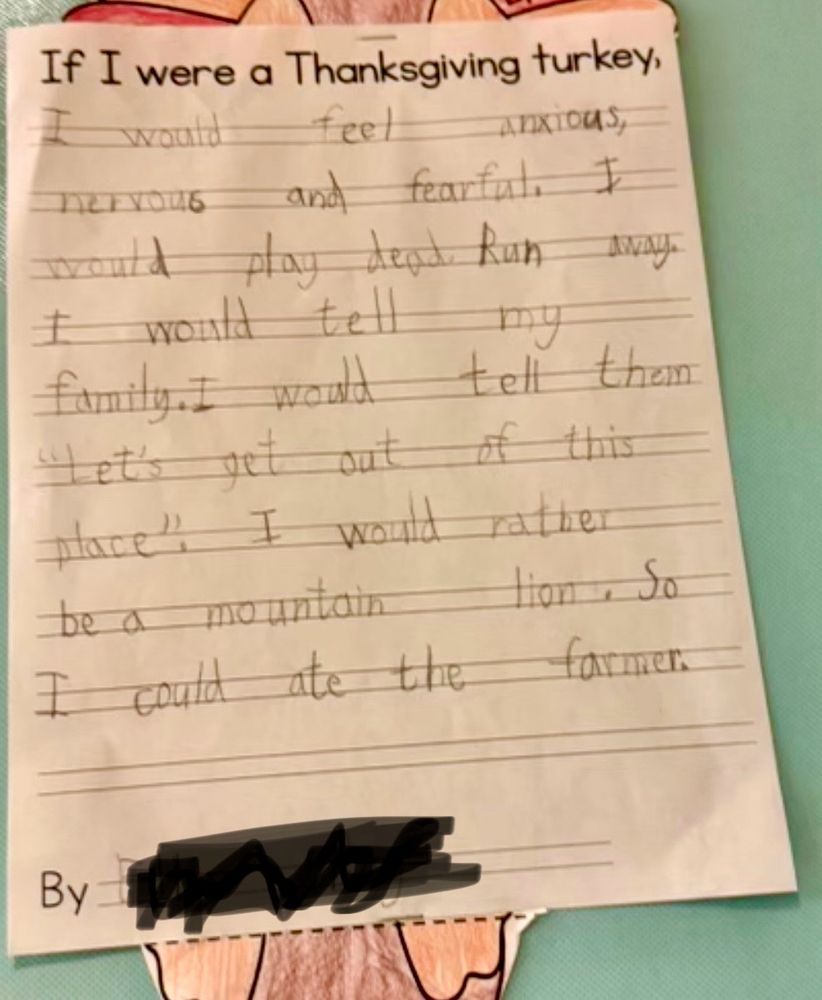 If I were a Thanksgiving turkey,
I would feel anxious,
nervous and fearful. I
would play dead. Run away.
I would tell my
family. I would tell them
"Let's get out of this
place". I would rather
be a mountain lion. So
I could ate the farmer.
By